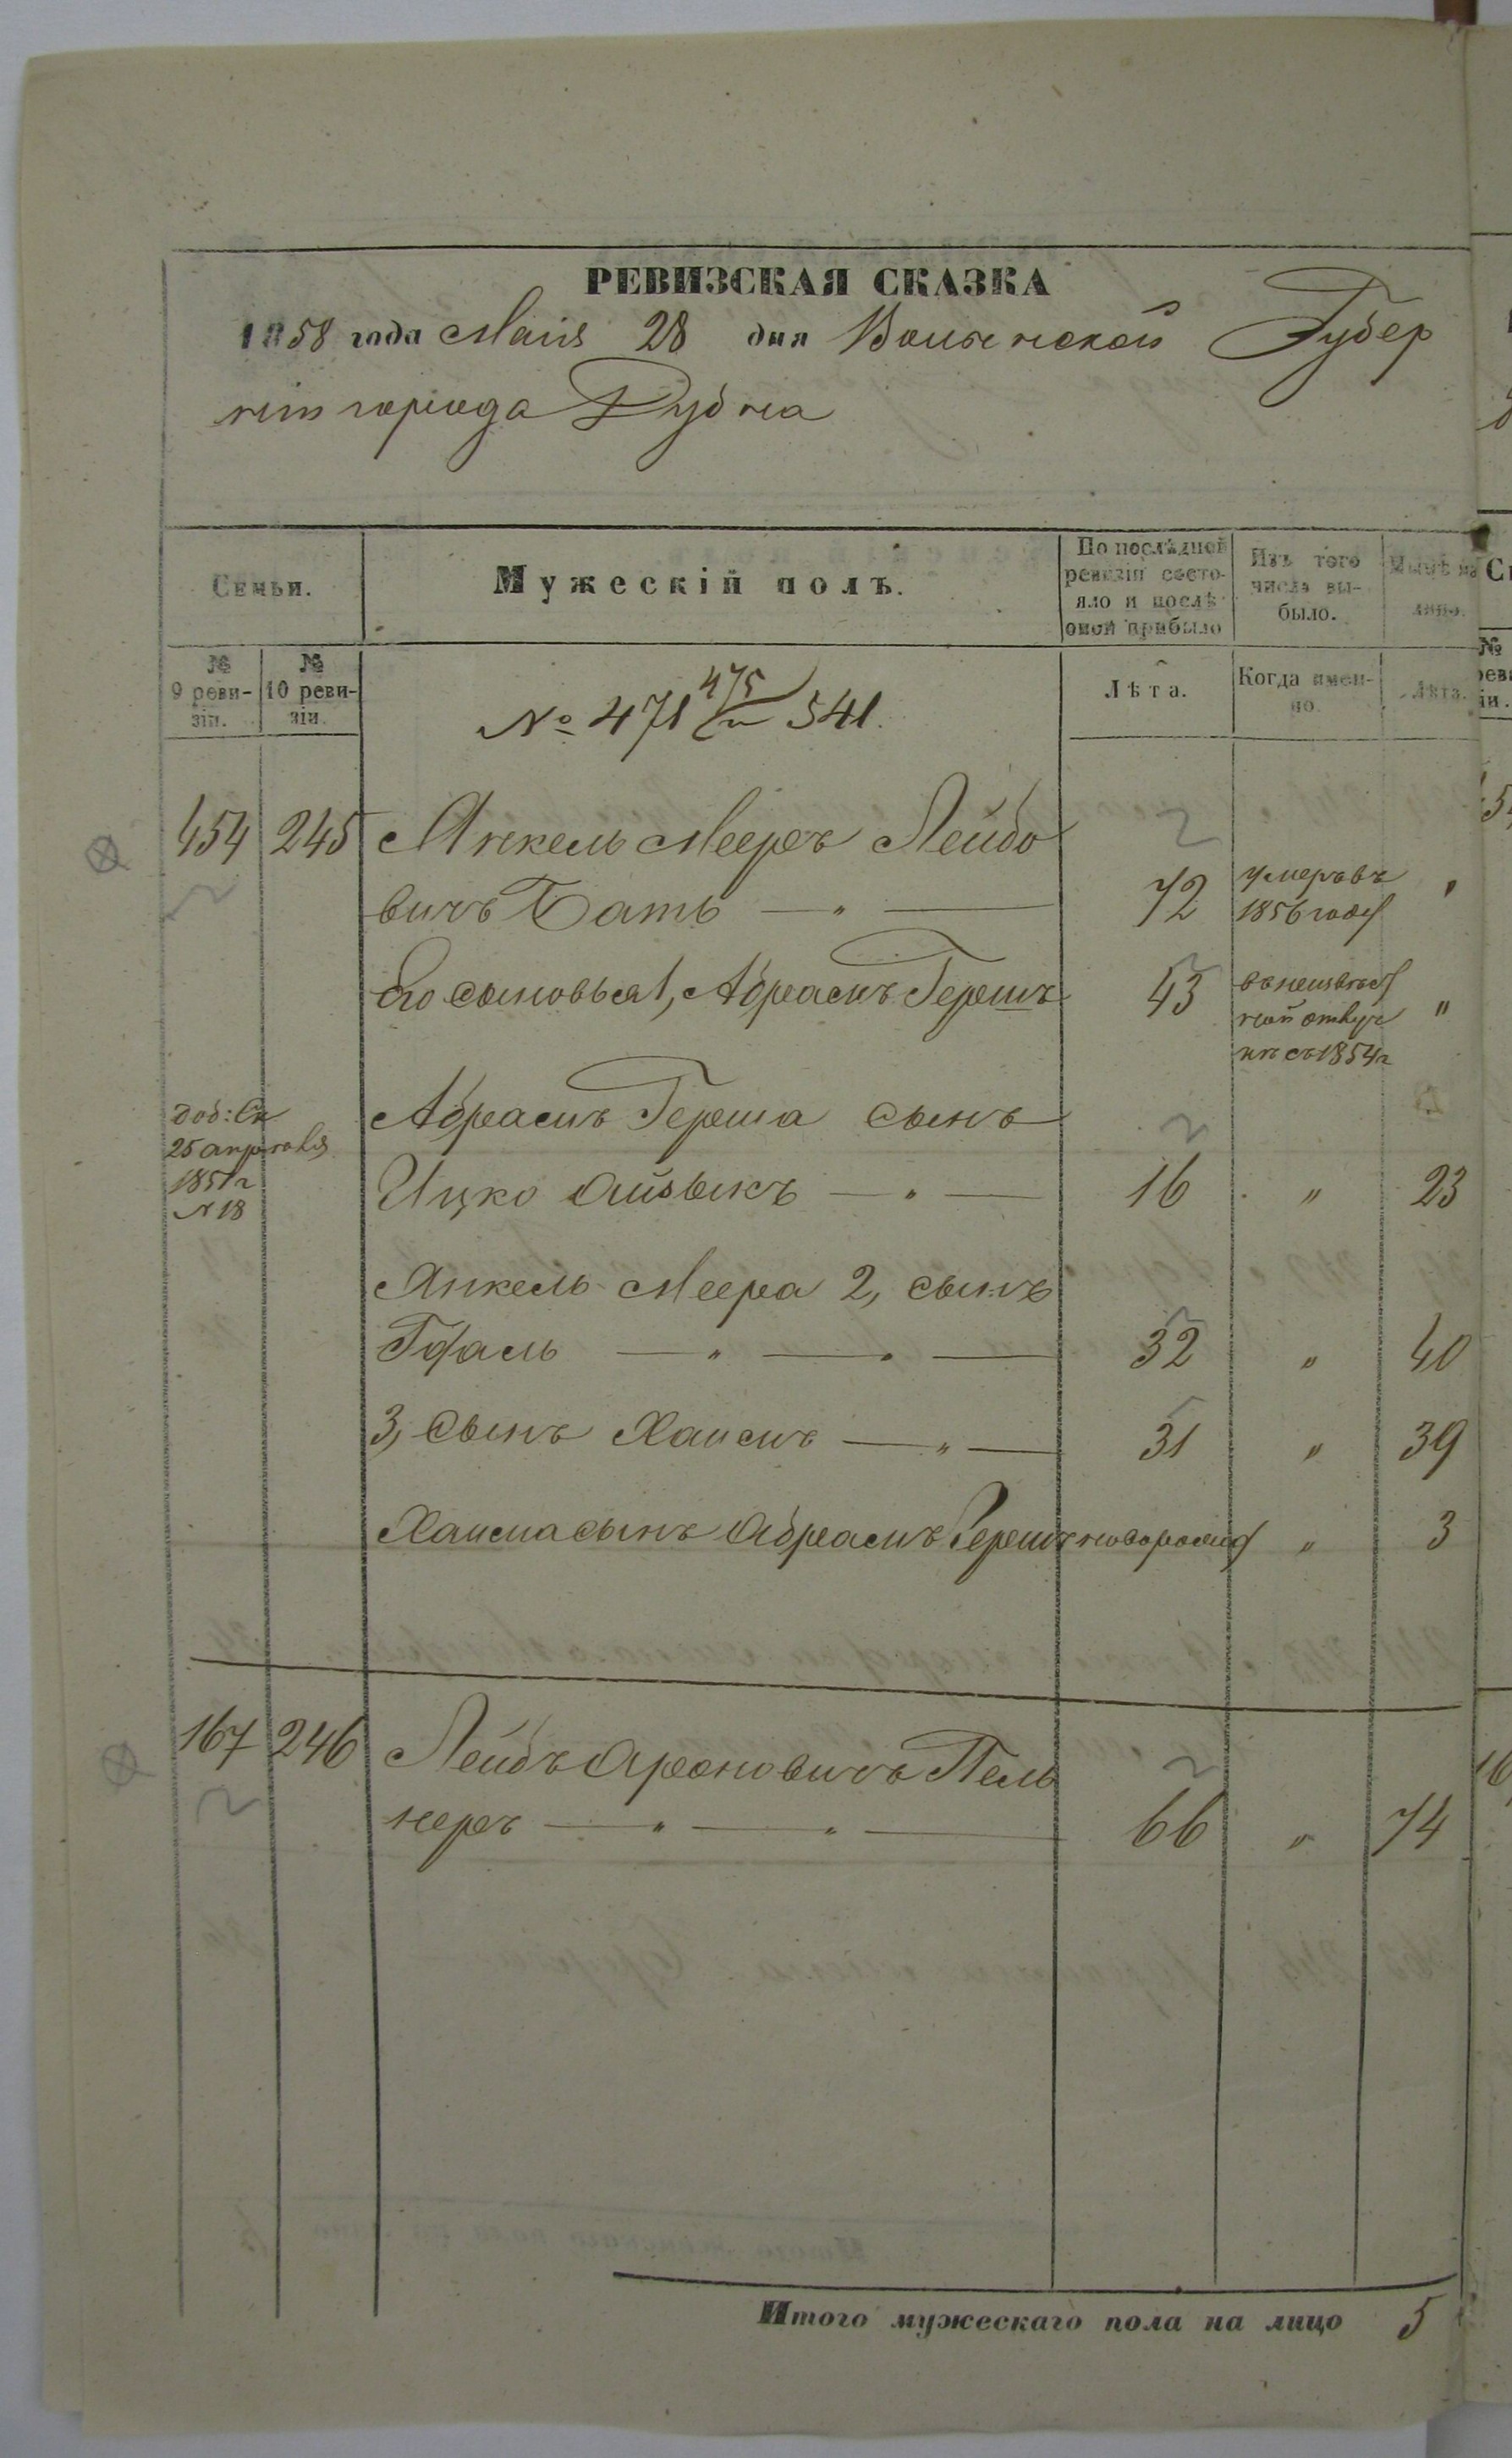 РЕВИЗСКАЯ СКАЗКА
1858 года Маия 28 дня Волынской Губер
ніи города Дубна
Семьи.
Мужескій полъ.
По послѣдней ревизіи состо-
яло и послѣ
оной прибыло
Изъ того
числа вы-
было.
Нынѣ на
лицо.
№
9 реви-
зіи.
№
10 реви-
зіи.
№ 471 475 541.
Лѣта.
Когда имен-
но.
Лѣта.
454 245 Янкель Мееръ Лейбо
вичъ Бать — " — 72 умеръ въ
1856 году "
Его сыновья 1, Абрамъ Гершъ 43 въ неизвѣст
ной отлуч
кѣ съ 1854 г "
Доб: Ск
25 апрѣля
1851 г
N 18
Абрама Герша сынъ
Ицко Айзыкъ — " — 16 " 23
Янкель Меера 2, сынъ
— " — " — 32 " 40
3, сынъ Хаимъ — " — 31 " 39
Хаима сынъ Абрамъ Гершъ новорожд " 3
167 246 Лейбъ Ароновичъ Пель
неръ — " — " — 66 " 74
Итого мужескаго пола на лицо 5